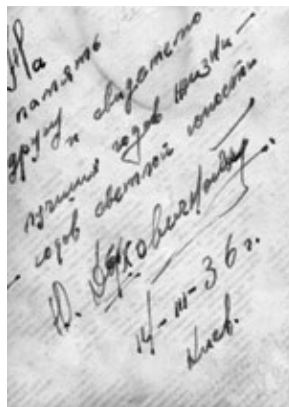 На
память
другу и свидетелю
лучших годов жизни –
– годов светлой юности
Ю.
14–III–36 г.
Киев.